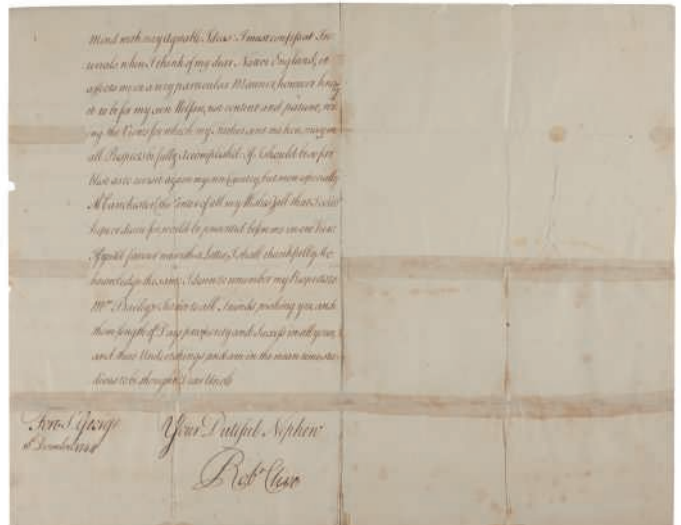 Mind with any Agreable Ideas. I must confess at In-
tervals when I think of my dear Native England, it
affects me in a very particular Manner, however knowg
it to be for my own Welfare, rest content and patient,
the Views for which my Father has in all Respects be fully Accomplished. If I should be so far
blest as to revisit again my own Country, but more especially
Manchester (the Center of all my Wishes) all that I could
hope or desire for, would be presented before me in one View.
If you'll favour me with a Letter, I shall thankfully Ac-
knowledge the same. I desire to remember my Respects to
Mrs. to all Friends, wishing you and
them length of Days prosperity and Success in all your
and their Undertakings and am in the mean time
to be thought Dear Uncle
Fort St. George
December
Your Dutiful Nephew
Robt. Clive